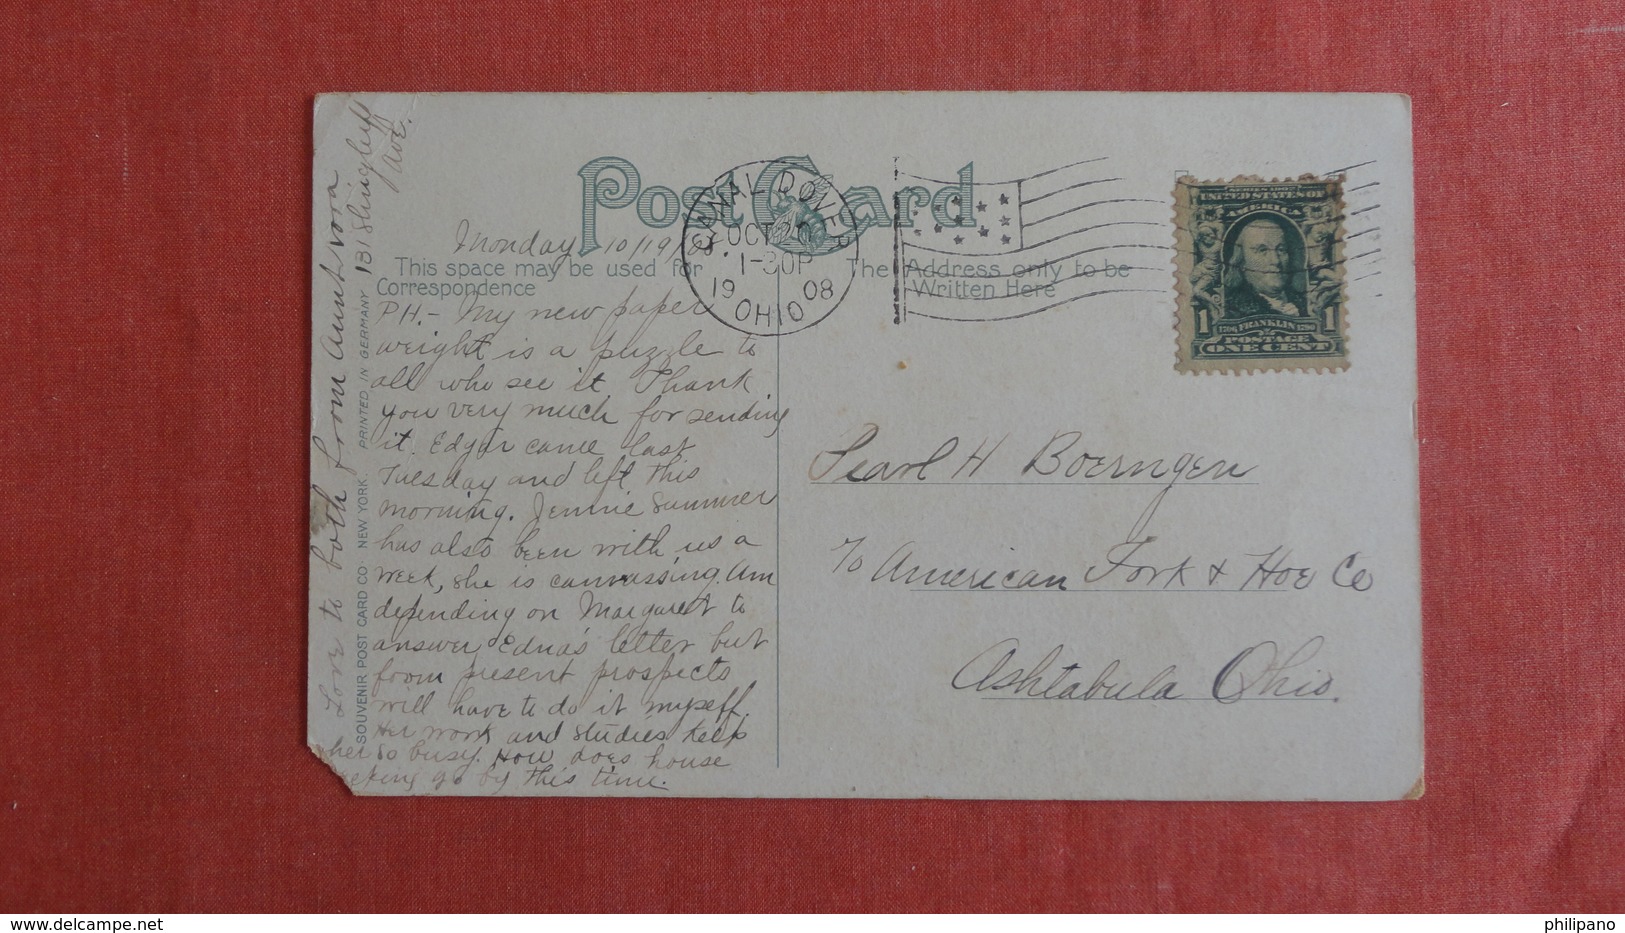 Post Card
Monday 10/19/08.
This space may be used for
Correspondence
P.H.- My new paper
weight is a puzzle to
all who see it. Thank
you very much for sending
it. Edgar came last
Tuesday and left this
morning. Jennie Summer
has also been with us a
week, she is canvassing. Am
depending on Margaret to
answer Edna's letter but
from present prospects
will have to do it myself.
Her work and studies keep
her so busy. How does house
keeping go by this time.
Love to both from Aunt
131 Shingleff
Ave.
SOUVENIR POST CARD CO NEW YORK. PRINTED IN GERMANY
CANAL DOVER
OCT 20
1-30P
1908
OHIO
The Address only to be
Written Here
SERIES 1902
UNITED STATES OF
AMERICA
1 1706 FRANKLIN 1790 1
POSTAGE
ONE CENT
Pearl H Boerngen
% American Fork & Hoe Co
Ashtabula Ohio.
delcampe.net
philipano